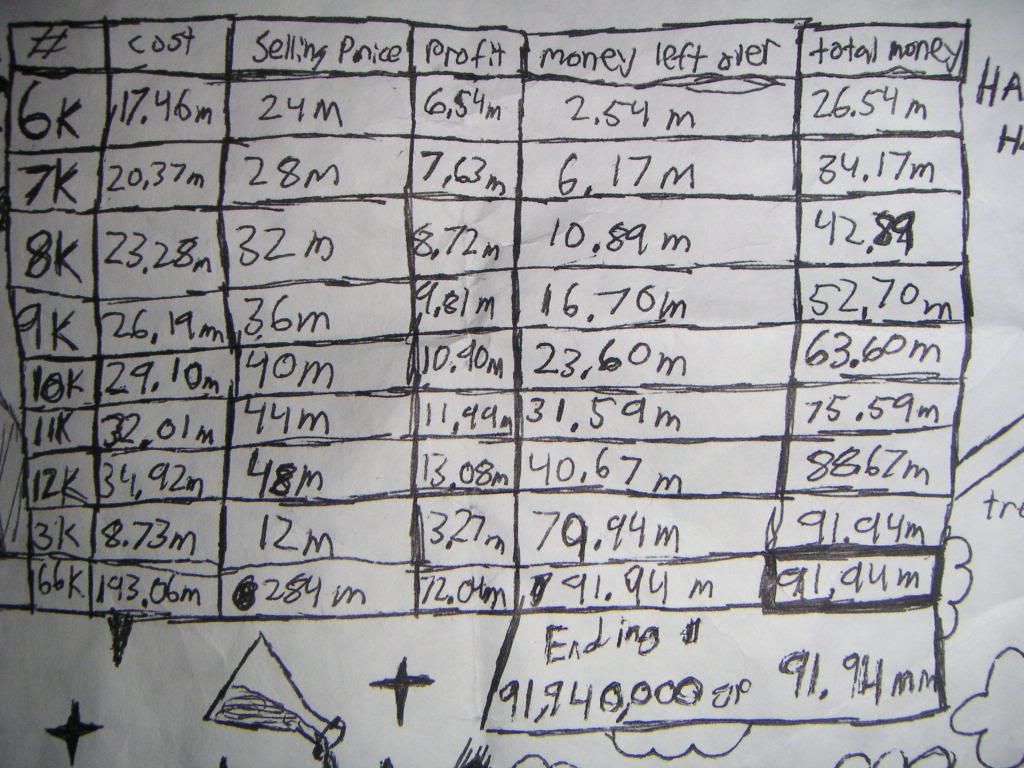 # cost Selling Price Profit money left over total money
6K 17.46m 24m 6.54m 2.54 m 26.54m
7K 20.37m 28m 7.63m 6.17m 34.17m
8K 23.28m 32m 8.72m 10.89m 42.89
9K 26.19m 36m 9.81m 16.70m 52.70m
10K 29.10m 40m 10.90m 23.60m 63.60m
11K 32.01m 44m 11.99m 31.59m 75.59m
12K 34.92m 48m 13.08m 40.67m 8867m
3K 8.73m 12m 3.27m 79.94m 91.94m
66K 193.06m 284m 72.04m 91.94 m 91.94m
Ending
91,940,000 gp 91.94 mm
HA